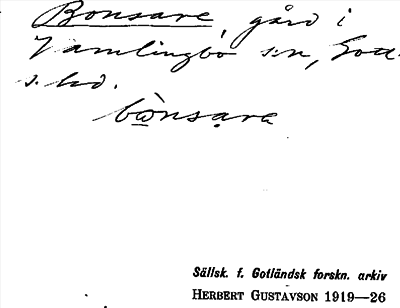 Bonsare, gård i
Vamlingbo s:n, Gotl.
s. hd.
bònsara
Sällsk. f. Gotländsk forskn. arkiv
HERBERT GUSTAVSON 1919—26